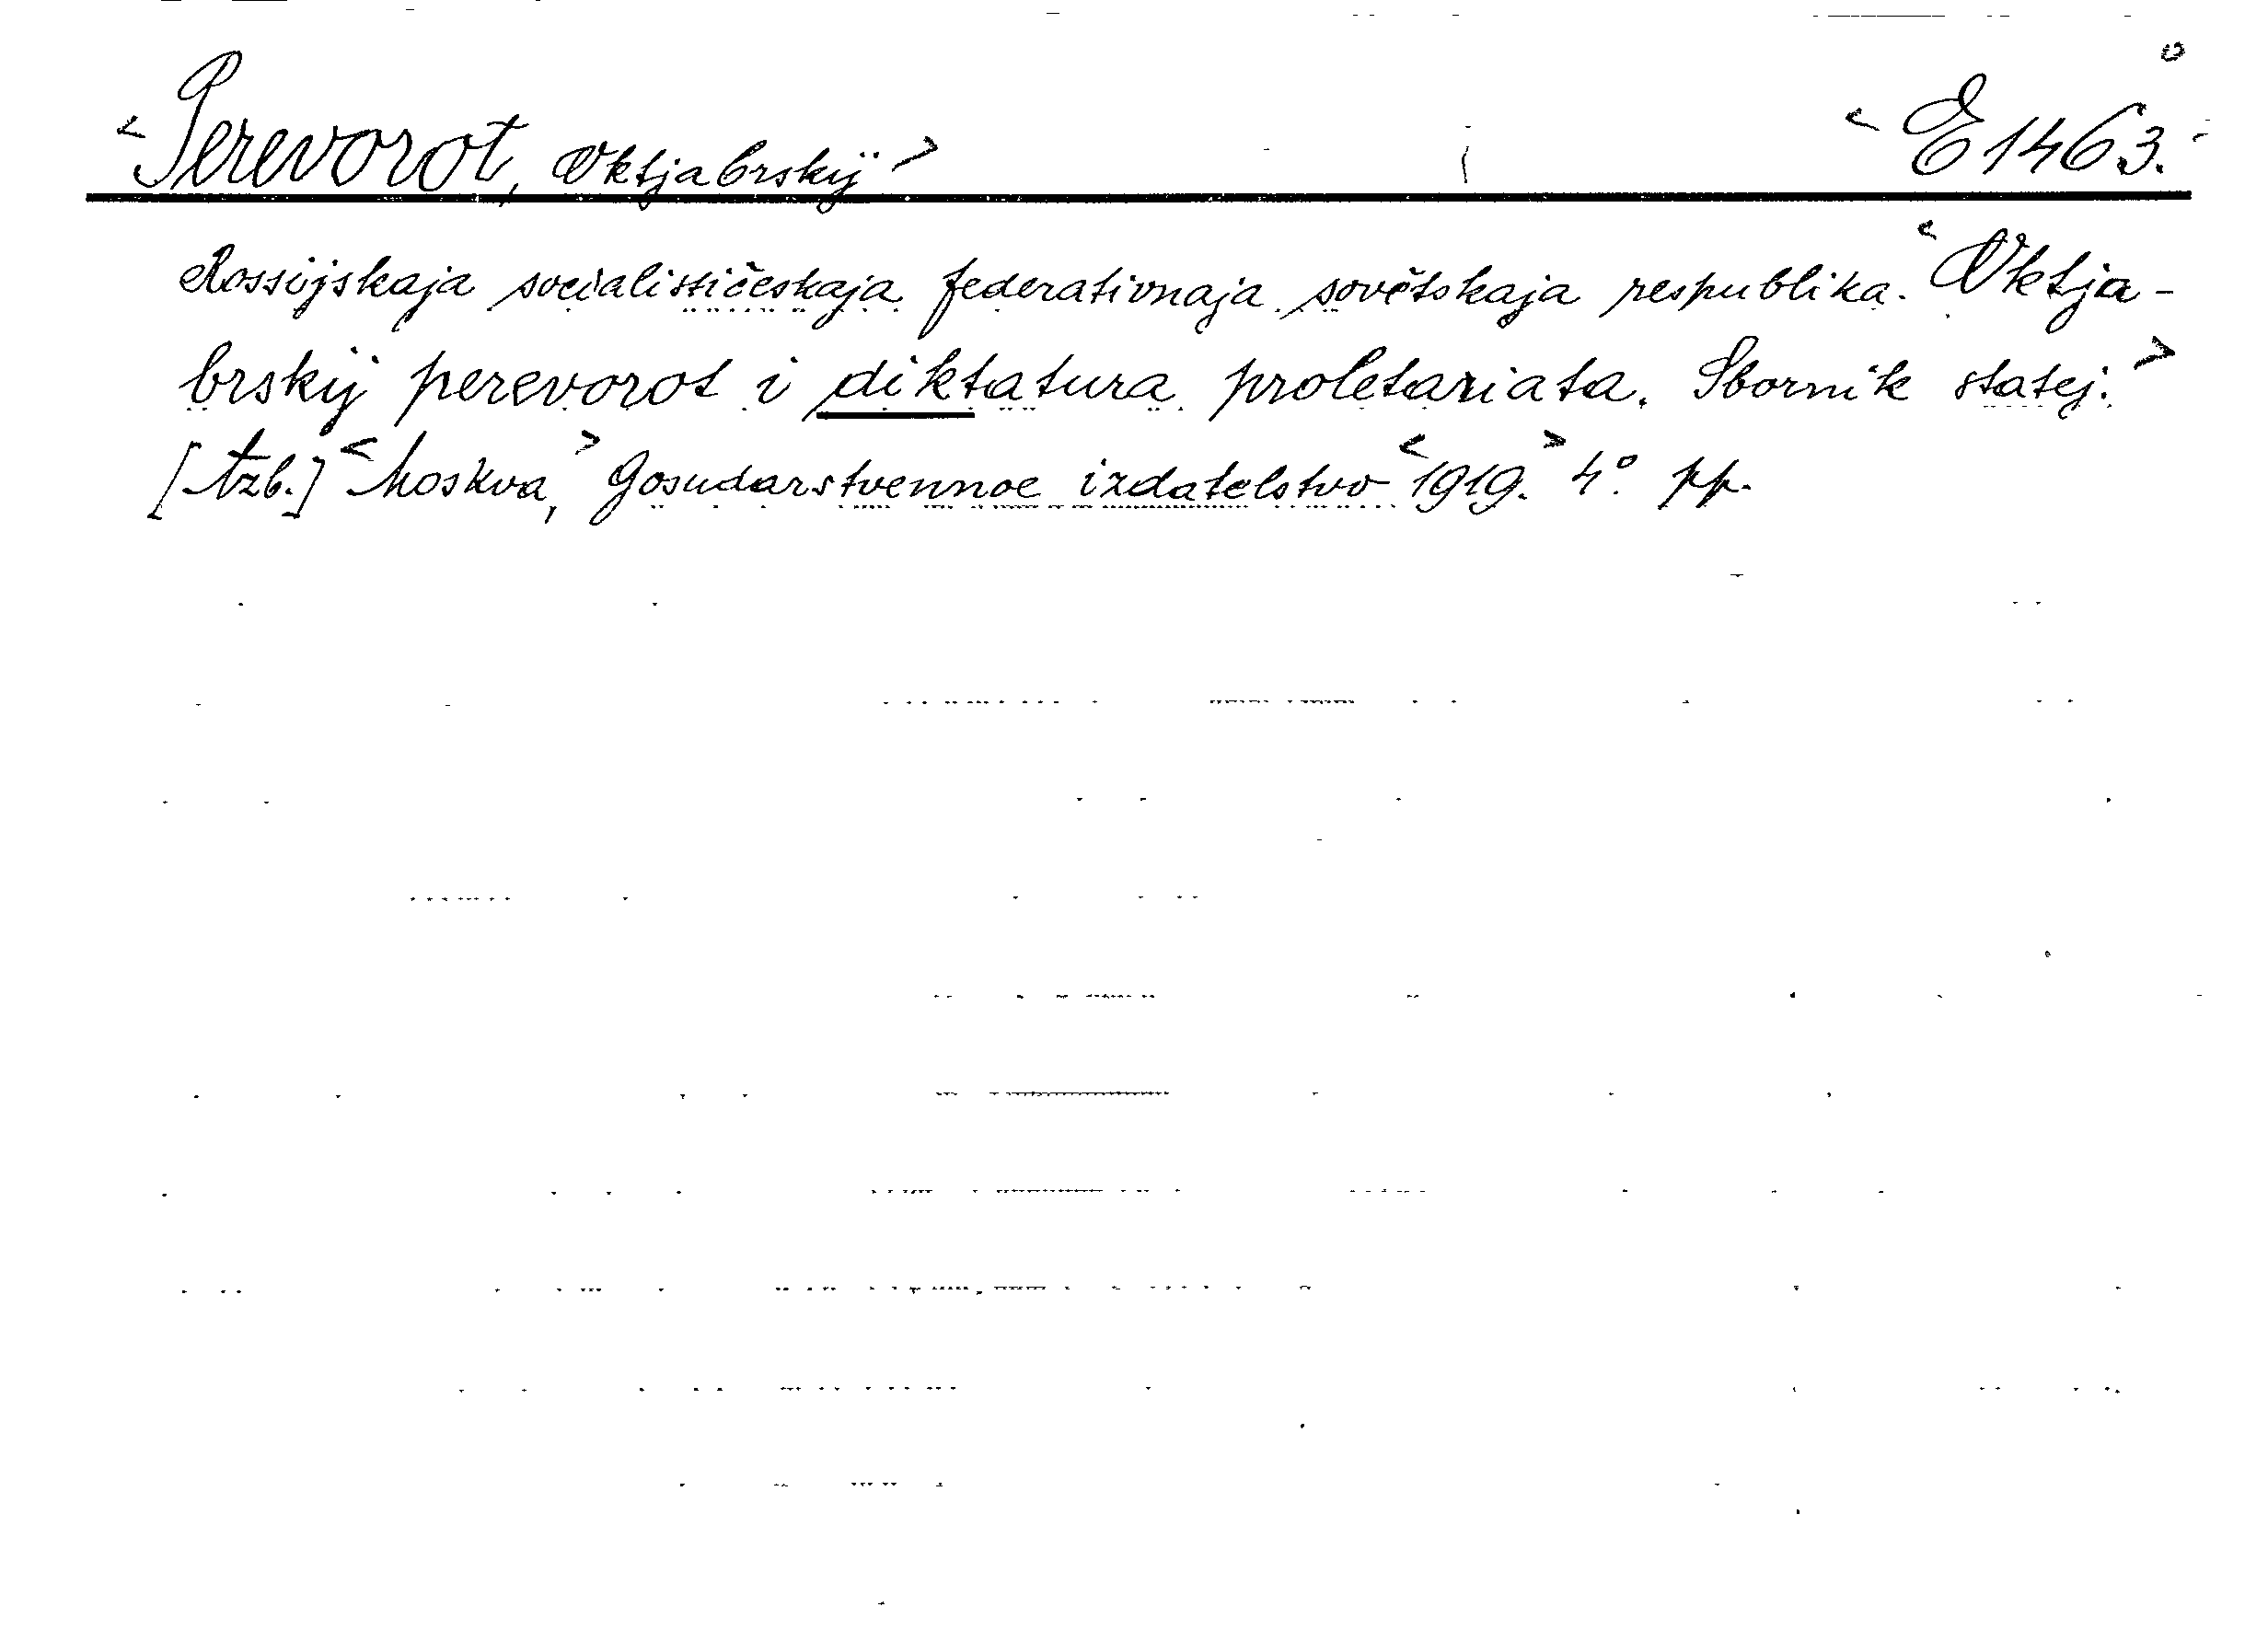 <Perevorot, Oktjabrskij> <E 1463.
Rossijskaja socialističeskaja federativnaja sovětskaja respublika. <Oktja-
brskij perevorot i diktatura proletariata. Sbornik statej.>
[Azb.] <Moskva,> Gosudarstvennoe izdatelstvo <1919.> 4° pp.